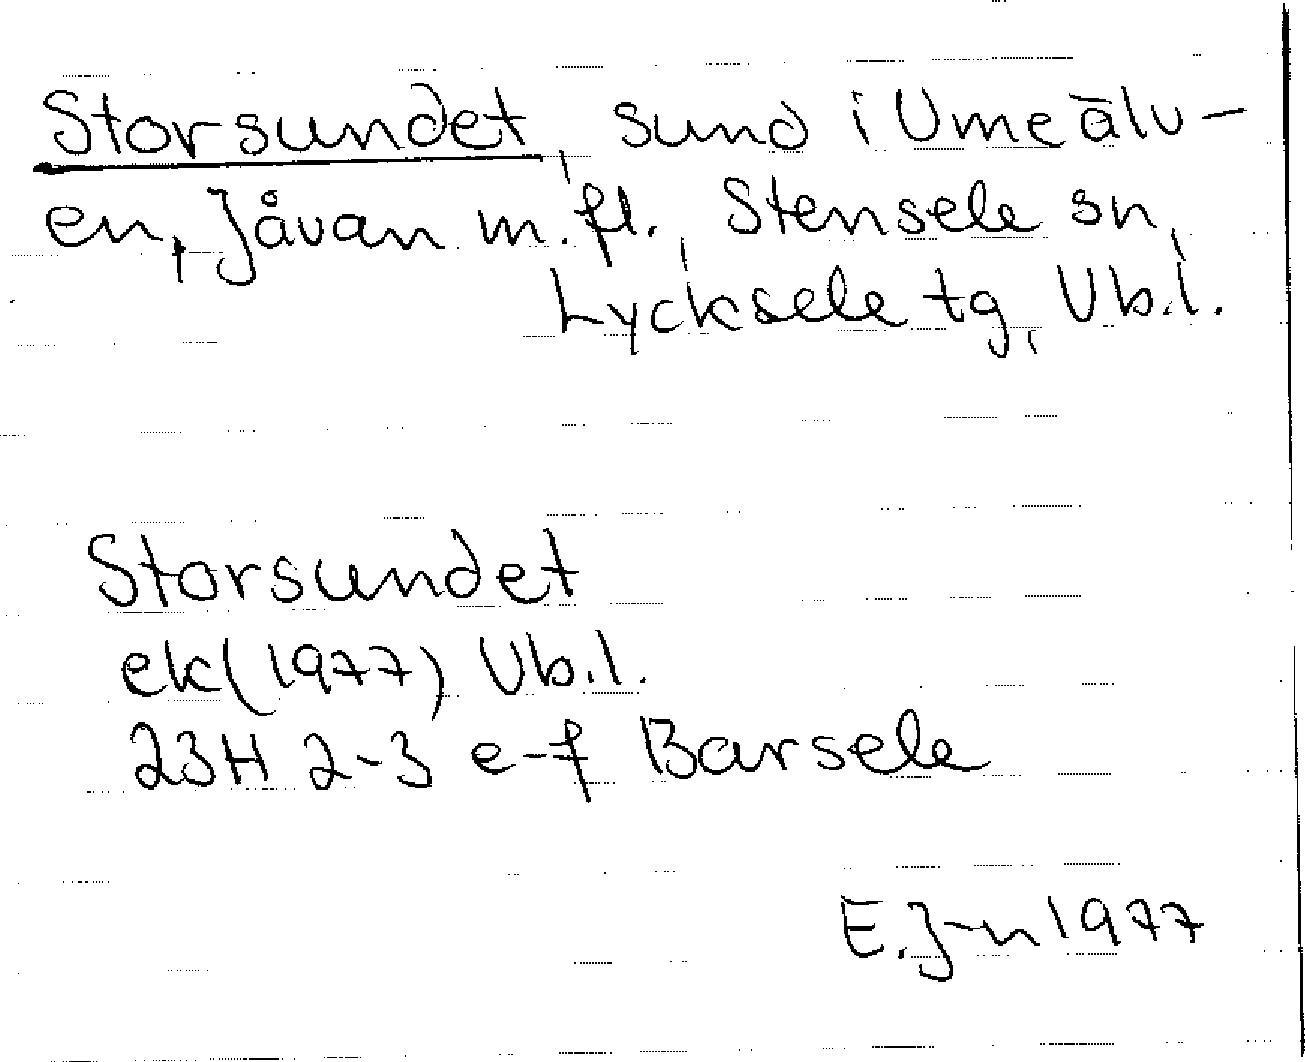 Storsundet, sund i Umeälv-
en, Jåvan m.fl., Stensele sn,
Lycksele tg, Vb.l.
Storsundet
ek(1977) Vb.l.
23H 2-3 e-f Barsele
E.J-n 1977